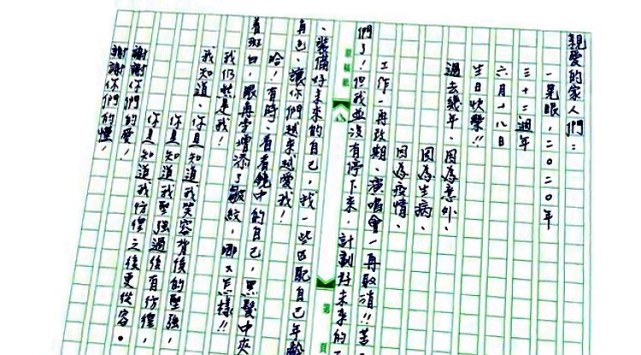 親愛的家人們:
一晃眼,二〇二〇年
三十二週年
六月十八日
生日快樂!!
過去幾年、因為意外、
因為生病、
因為疫情、
工作一再改期、演唱會一再取消!!苦了
們了!但我並沒有停下來,計劃好未來的
稿紙
八
第 頁
、裝備好未來的自己,我一些匹配自己年齡
角色、讓你們越來越愛我!
哈!有時、看看鏡中的自己,黑髮中夾
著斑白,眼角旁增添了皺紋,哪又怎樣!!
我仍然是我!
我知道、你知道我笑容背後的堅強,
你真知道我堅強過後有彷徨,
你真知道我彷徨之後更從容。
謝謝你們的愛!
謝謝你們的懂!